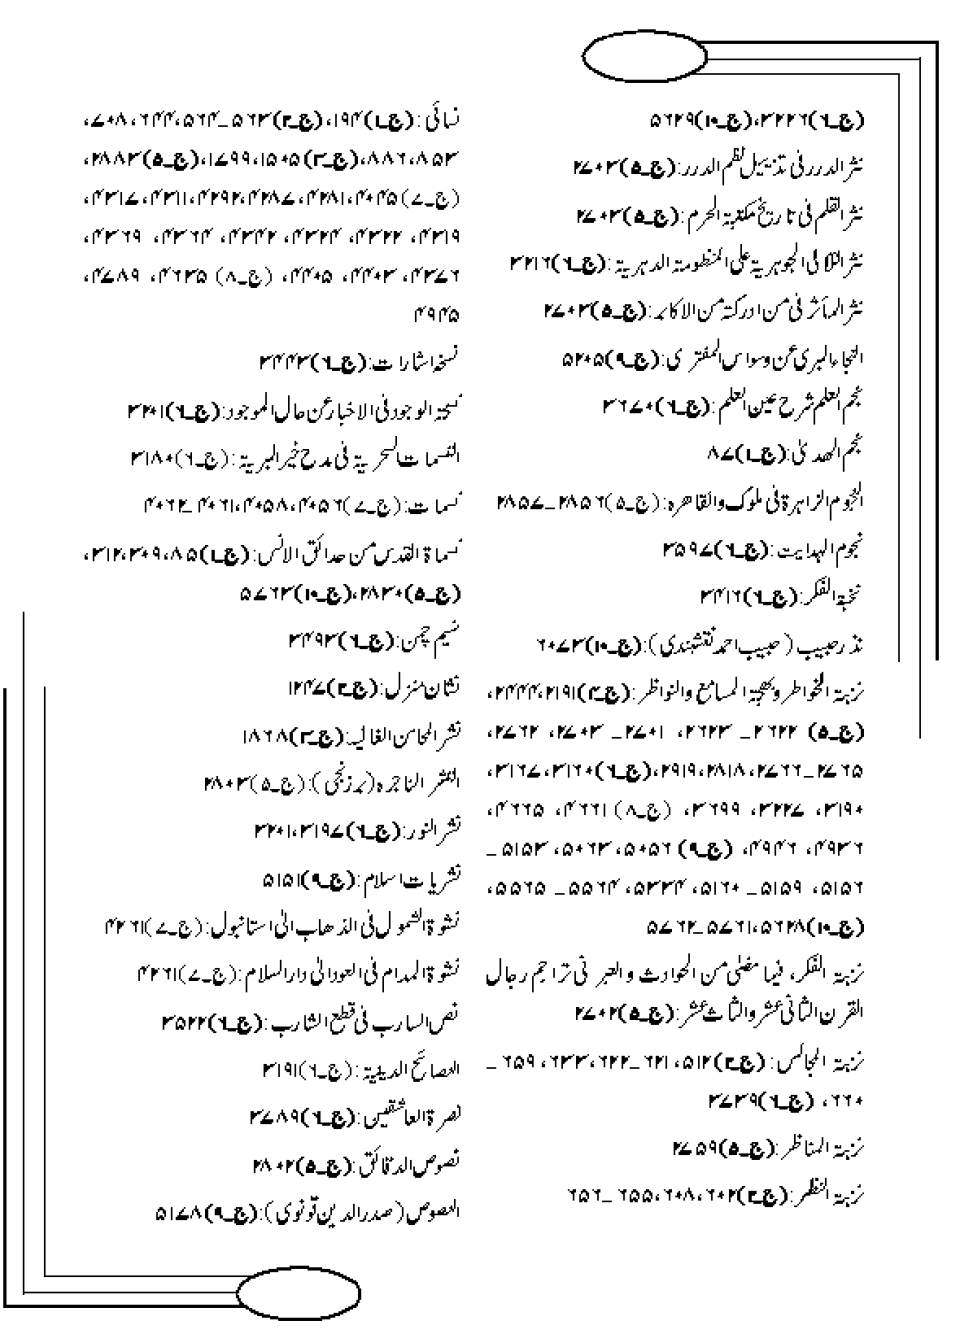 (ج۔٦)۳۲۲٦،(ج۔١٠)۵٦۲۹
نثر الدرر فی تذییل نظم الدرر:(ج۔۵)۲۷۰۳
نثر القلم فی تاریخ مکتبۃ الحرم:(ج۔۵)۲۷۰۳
نثر اللآلی الجوہریۃ علی المنظومۃ الدہریۃ:(ج۔٦)۳۲۱٦
نثر المآثر فی من ادرکتہ من الاکابر:(ج۔۵)۲۷۰۳
النجاء البری عن وسواس المفتری:(ج۔۹)۵۲۰۵
نجم العلم شرح عین العلم:(ج۔٦)۳٦۷۰
نجم الھدیٰ:(ج۔۱)۸۷
النجوم الزاہرۃ فی ملوک والقاھرہ:(ج۔۵)۲۸۵٦۔۲۸۵۷
نجوم الہدایت:(ج۔٦)۳۵۹۷
نخبۃ الفکر:(ج۔٦)۳۴۱٦
نذرحبیب(حبیب احمد نقشبندی):(ج۔۱۰)٦۰۷۳
نزہۃ الخواطر وبھجۃ المسامع والنواظر:(ج۔۳)۲۱۹۱،۲۴۴۴،
(ج۔۵) ۲٦۲۲۔ ۲٦۲۳، ۲۷۰۱۔ ۲۷۰۳، ۲۷٦۲،
۲۷٦۵۔۲۷٦٦،۲۸۱۸،۲۹۱۹،(ج۔٦)۳۱٦۰،۳۱٦۷،
۳۱۹۰، ۳۲۲۷، ۳٦۹۹، (ج۔۸)۴٦٦۱، ۴٦٦۵،
۴۹۳٦، ۴۹۴٦، (ج۔۹)۵۰۵٦، ۵۰٦۳، ۵۱۵۳۔
۵۱۵٦، ۵۱۵۹۔ ۵۱٦۰، ۵۳۳۴، ۵۵٦۴۔ ۵۵٦۵،
(ج۔۱۰)۵٦۲۸،۵۷٦۱۔۵۷٦۲
نزہۃ الفکر، فیما مضیٰ من الحوادث والعبر فی تراجم رجال
القرن الثانی عشر والثالث عشر:(ج۔۵)۲۷۰۲
نزہۃ المجالس:(ج۔۲)۵۱۲، ٦۲۱۔٦۲۲،٦۳۳، ٦۵۹۔
٦٦۰، (ج۔٦)۳۷۳۹
نزہۃ المناظر:(ج۔۵)۲۷۵۹
نزہۃ النظر:(ج۔۲)٦۰۲،٦۰۸،٦۵۵۔ ٦۵٦
نسائی:(ج۔۱)۱۹۴،(ج۔۲)۵٦۳۔۵٦۴،٦۴۴، ۷۰۸،
۸۵۳،۸۸٦،(ج۔۳)۱۵۰۵،۱۷۹۹،(ج۔۵)۲۸۸۳،
(ج۔۷)۴۰۴۵،۴۲۸۱،۴۲۸۷،۴۲۹۲،۴۳۱۱،۴۳۱۷،
۴۳۱۹، ۴۳۲۲، ۴۳۲۴، ۴۳۴۲، ۴۳٦۴، ۴۳٦۹،
۴۳۷٦، ۴۴۰۳، ۴۴۰۵، (ج۔۸)۴٦۳۵، ۴۷۸۹،
۴۹۴۵
نسخہ اشارات:(ج۔٦)۳۴۴۳
نسجۃ الوجود فی الاخبار عن حال الموجود:(ج۔٦)۳۲۰۱
النسمات السحریۃ فی مدح خیر البریۃ:(ج۔٦)۳۱۸۰
نسمات:(ج۔۷)۴۰۵٦،۴۰۵۸،۴۰٦۱۔۴۰٦۲
نسماۃ القدس من حدائق الانس:(ج۔۱)۸۵،۳۰۹،۳۱۲،
(ج۔۵)۲۸۳۰،(ج۔۱۰)۵۷٦۳
نسیم چمن:(ج۔٦)۳۴۹۳
نشان منزل:(ج۔۲)۱۲۴۷
نشر المحاسن الغالیہ:(ج۔۳)۱۸٦۸
النشر الناجرہ(برزنجی):(ج۔۵)۲۸۰۳
نشر النور:(ج۔٦)۳۱۹۷،۳۲۰۱
نشریات اسلام:(ج۔۹)۵۱۵۱
نشوۃ الشمول فی الذھاب الیٰ استانبول:(ج۔۷)۴۲٦۱
نشوۃ المدام فی العود الیٰ دار السلام:(ج۔۷)۴۲٦۱
نص السارب فی قطع الشارب:(ج۔٦)۳۵۲۲
النصائح الدینیۃ:(ج۔٦)۳۱۹۱
نصرۃ العاشقین:(ج۔٦)۳۷۸۹
نصوص الدقائق:(ج۔۵)۲۸۰۲
النصوص(صدرالدین قونوی):(ج۔۹)۵۱۷۸